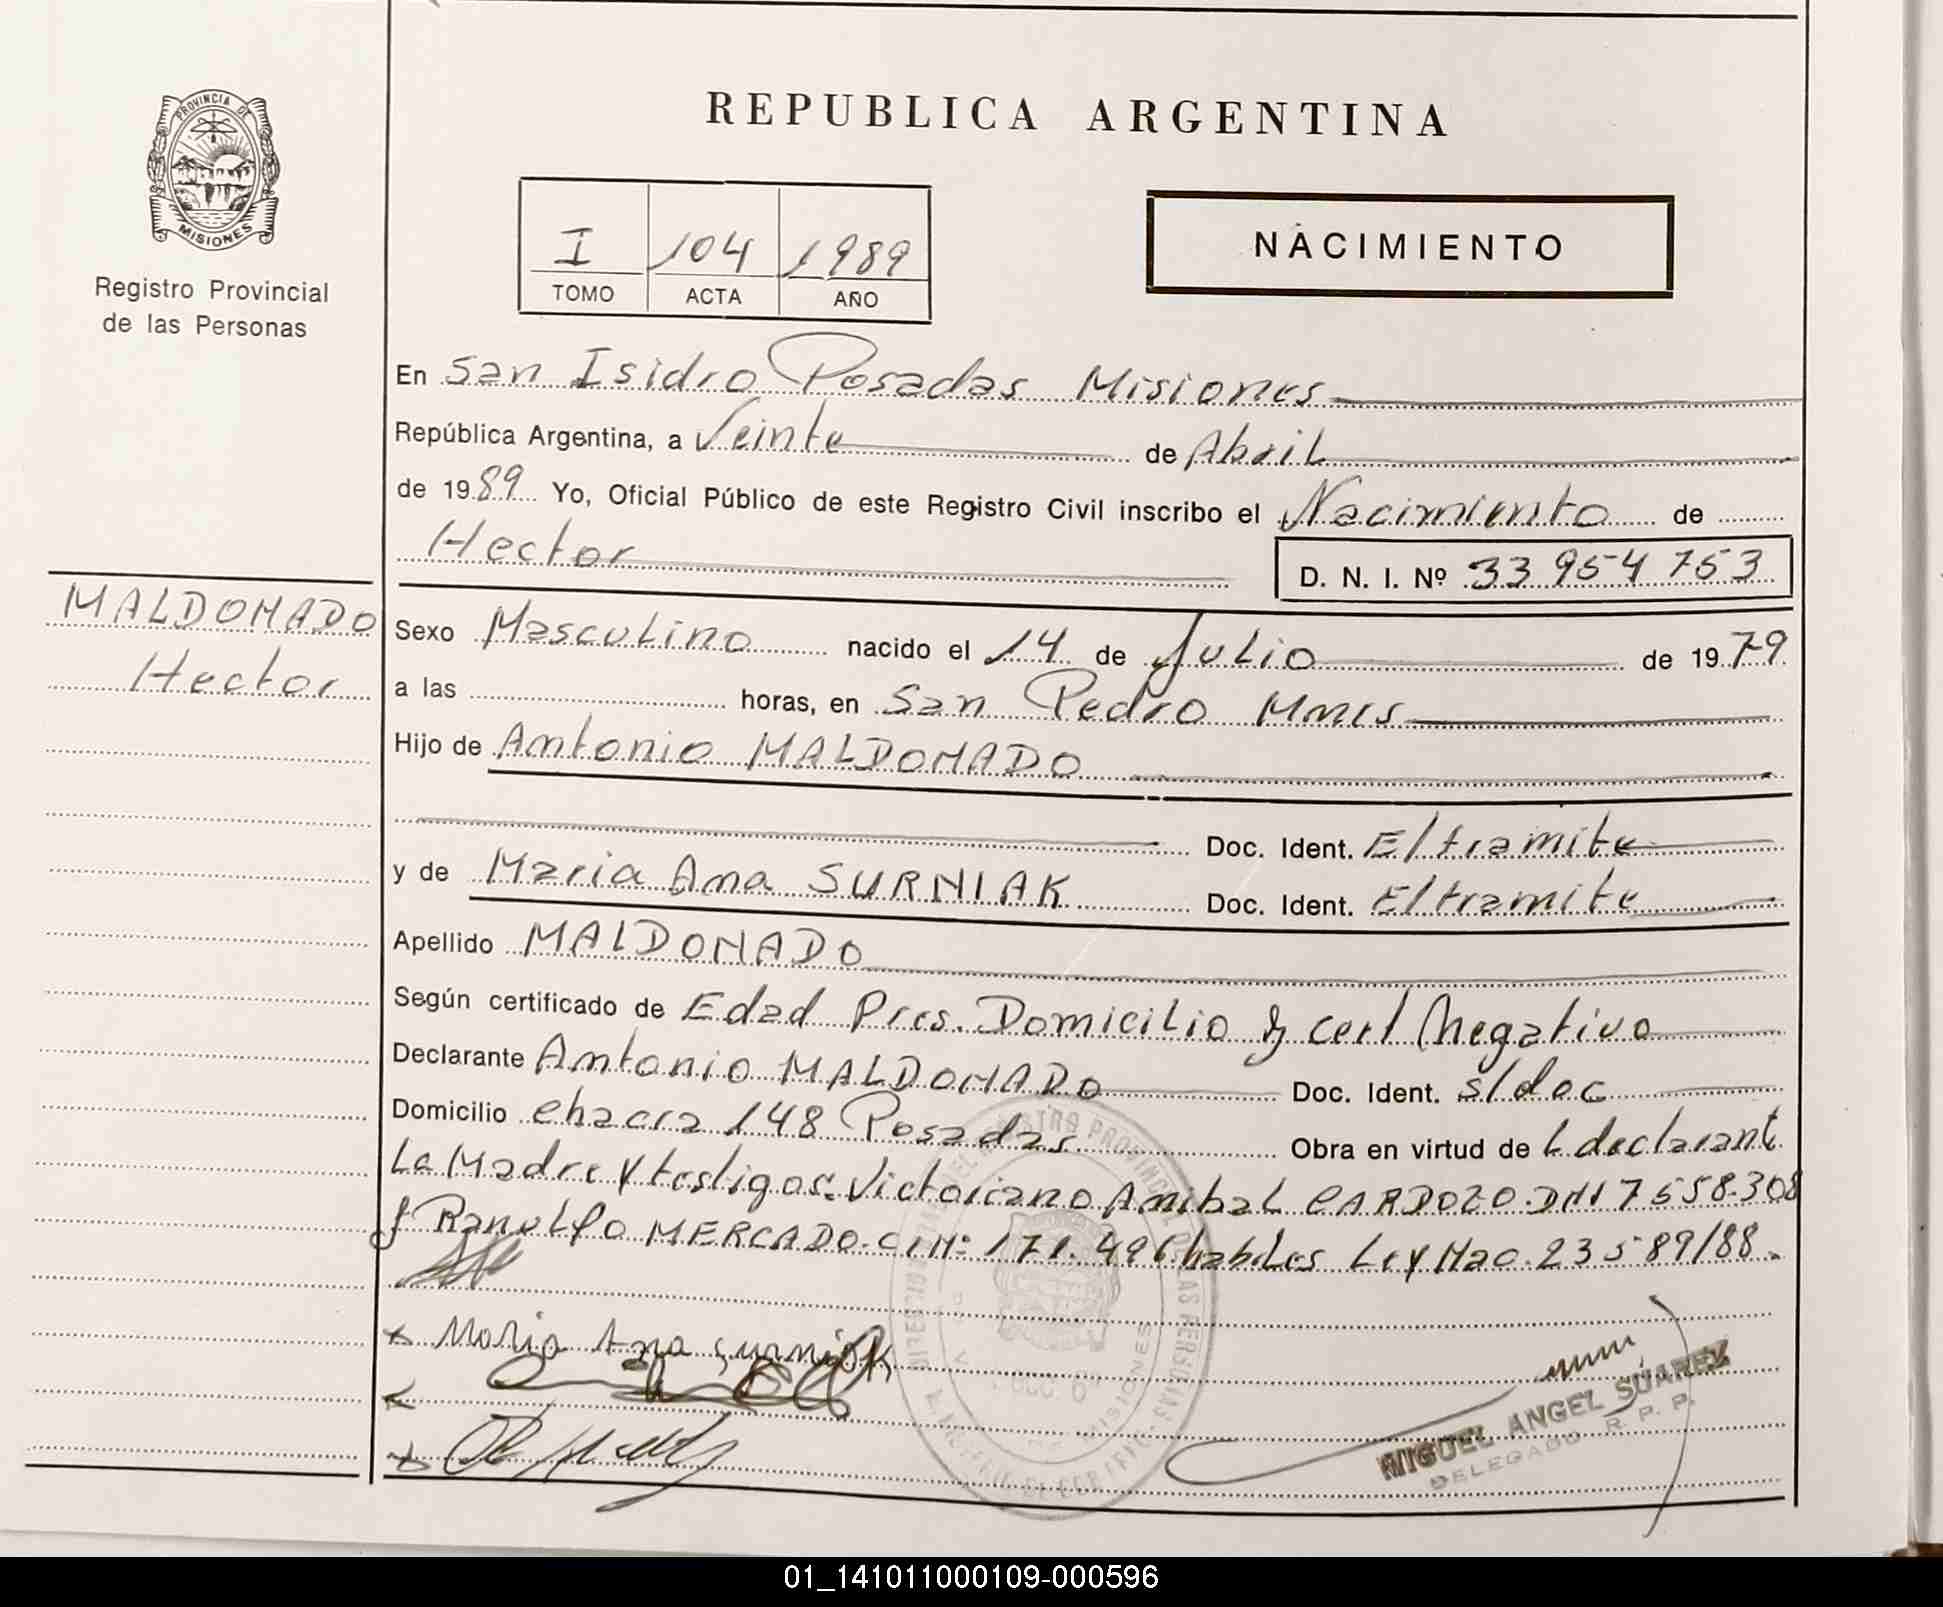 PROVINCIA DE
MISIONES
Registro Provincial
de las Personas
MALDONADO
Hector
REPUBLICA ARGENTINA
I 104 1989
TOMO ACTA AÑO
NACIMIENTO
En San Isidro Posadas Misiones
República Argentina, a Veinte de Abril
de 1989 Yo, Oficial Público de este Registro Civil inscribo el Nacimiento de
Hector D. N. I. Nº 33 954 753
Sexo Masculino nacido el 14 de Julio de 1979
a las horas, en San Pedro Mnes
Hijo de Antonio MALDONADO
Doc. Ident. E/tramite
y de Maria Ana SURNIAK Doc. Ident. E/tramite
Apellido MALDONADO
Según certificado de Edad Pres. Domicilio y cert Negativo
Declarante Antonio MALDONADO Doc. Ident. s/doc
Domicilio chacra 148 Posadas Obra en virtud de L declarant
La Madre y testigos. Victoriano Anibal CARDOZO. DNI 7558.308
y Ranulfo MERCADO. CI Nº 171.496 habiles Ley Nac. 23589/88.
x Maria Ana Surniak
MIGUEL ANGEL SUAREZ
DELEGADO R. P. P.
01_141011000109-000596